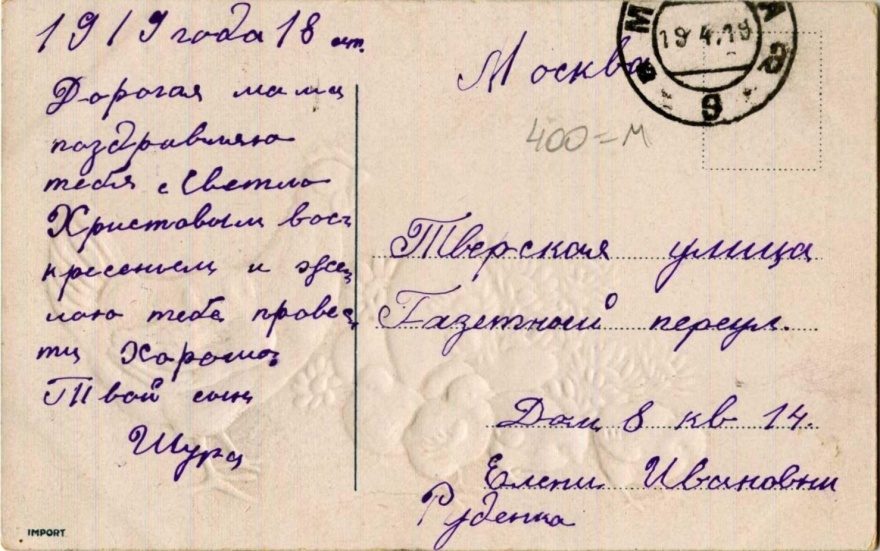 1919 года 18 апр.
Дорогая мама
поздравляю
тебя с Светло
Христовым вос
кресеньем и же
лаю тебе провес
ти хорошо
Твой сын
Шура
Москва
М А
19 4.19
9
400=M
Тверская улица
Газетный переул.
Дом 8 кв 14.
Елени Ивановни
Руденко
IMPORT